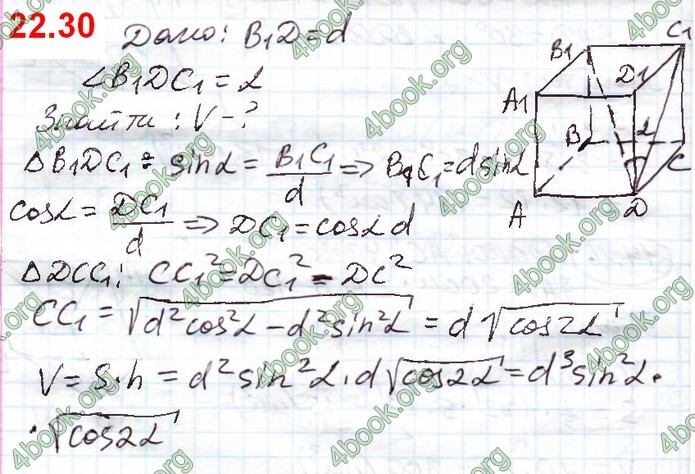 22.30 Дано: B₁D = d
∠B₁DC₁ = α
Знайти: V - ?
ΔB₁DC₁: sinα = B₁C₁/d => B₁C₁ = d sinα
cosα = DC₁/d => DC₁ = cosα d
ΔDCC₁: CC₁² = DC₁² - DC²
CC₁ = √(d²cos²α - d²sin²α) = d√(cos2α)
V = S·h = d²sin²α · d√(cos2α) = d³sin²α ·
· √(cos2α)
B₁ C₁
A₁ D₁
B α C
A D
4book.org 4book.org 4book.org